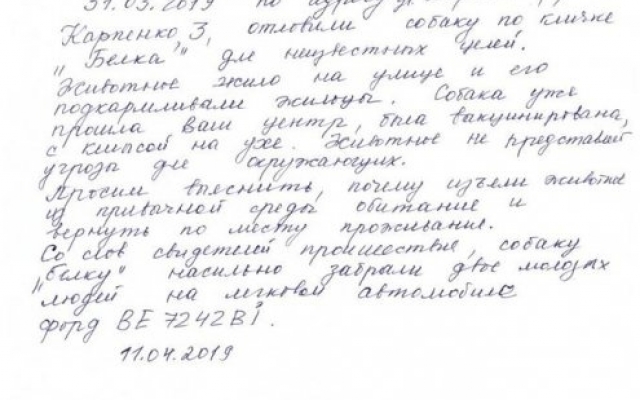 31.03.2019 по адресу ул.
Карпенко, 3, отловили собаку по кличке
"Белка," для неизвестных целей.
Животное жило на улице и его
подкармливали жильцы. Собака уже
прошла ваш центр, была вакцинирована,
с клипсой на ухе. Животное не представляй
угрозы для окружающих.
Просим выяснить, почему изъели животное
из привычной среды обитание и
вернуть по месту проживание.
Со слов свидетелей происшествие, собаку
"белку" насильно забрали двое молодых
людей на легковой автомобиле
форд ВЕ 7242 ВІ.
11.04.2019